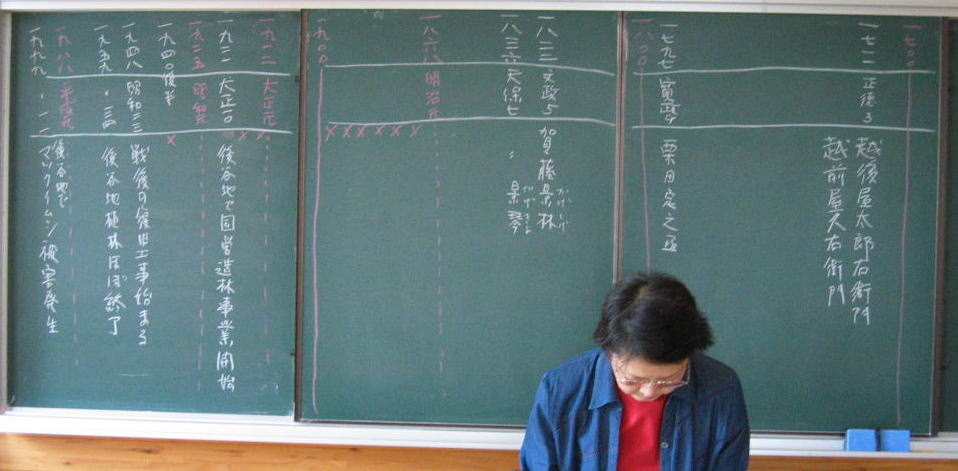 一七〇〇
一七一一 正徳3 越後屋太郎右衛門
越前屋久右衛門
一七九七 寛政9 栗田定之丞
一八〇〇
一八二二 文政5 賀藤景林
かげしげ
一八三六 天保七 〃 景琴
かげきよ
一八六八 明治元
一九〇〇
一九一二 大正元
一九二一 大正一〇 後谷地で国営造林事業開始
一九二五 昭和元
一九四〇後半
一九四八 昭和二三 戦後の復旧工事始まる
一九五九 〃 三四 後谷地植林ほぼ終了
一九八八 平成元
一九九九 〃 一一 後谷地で
マツクイムシ被害発生